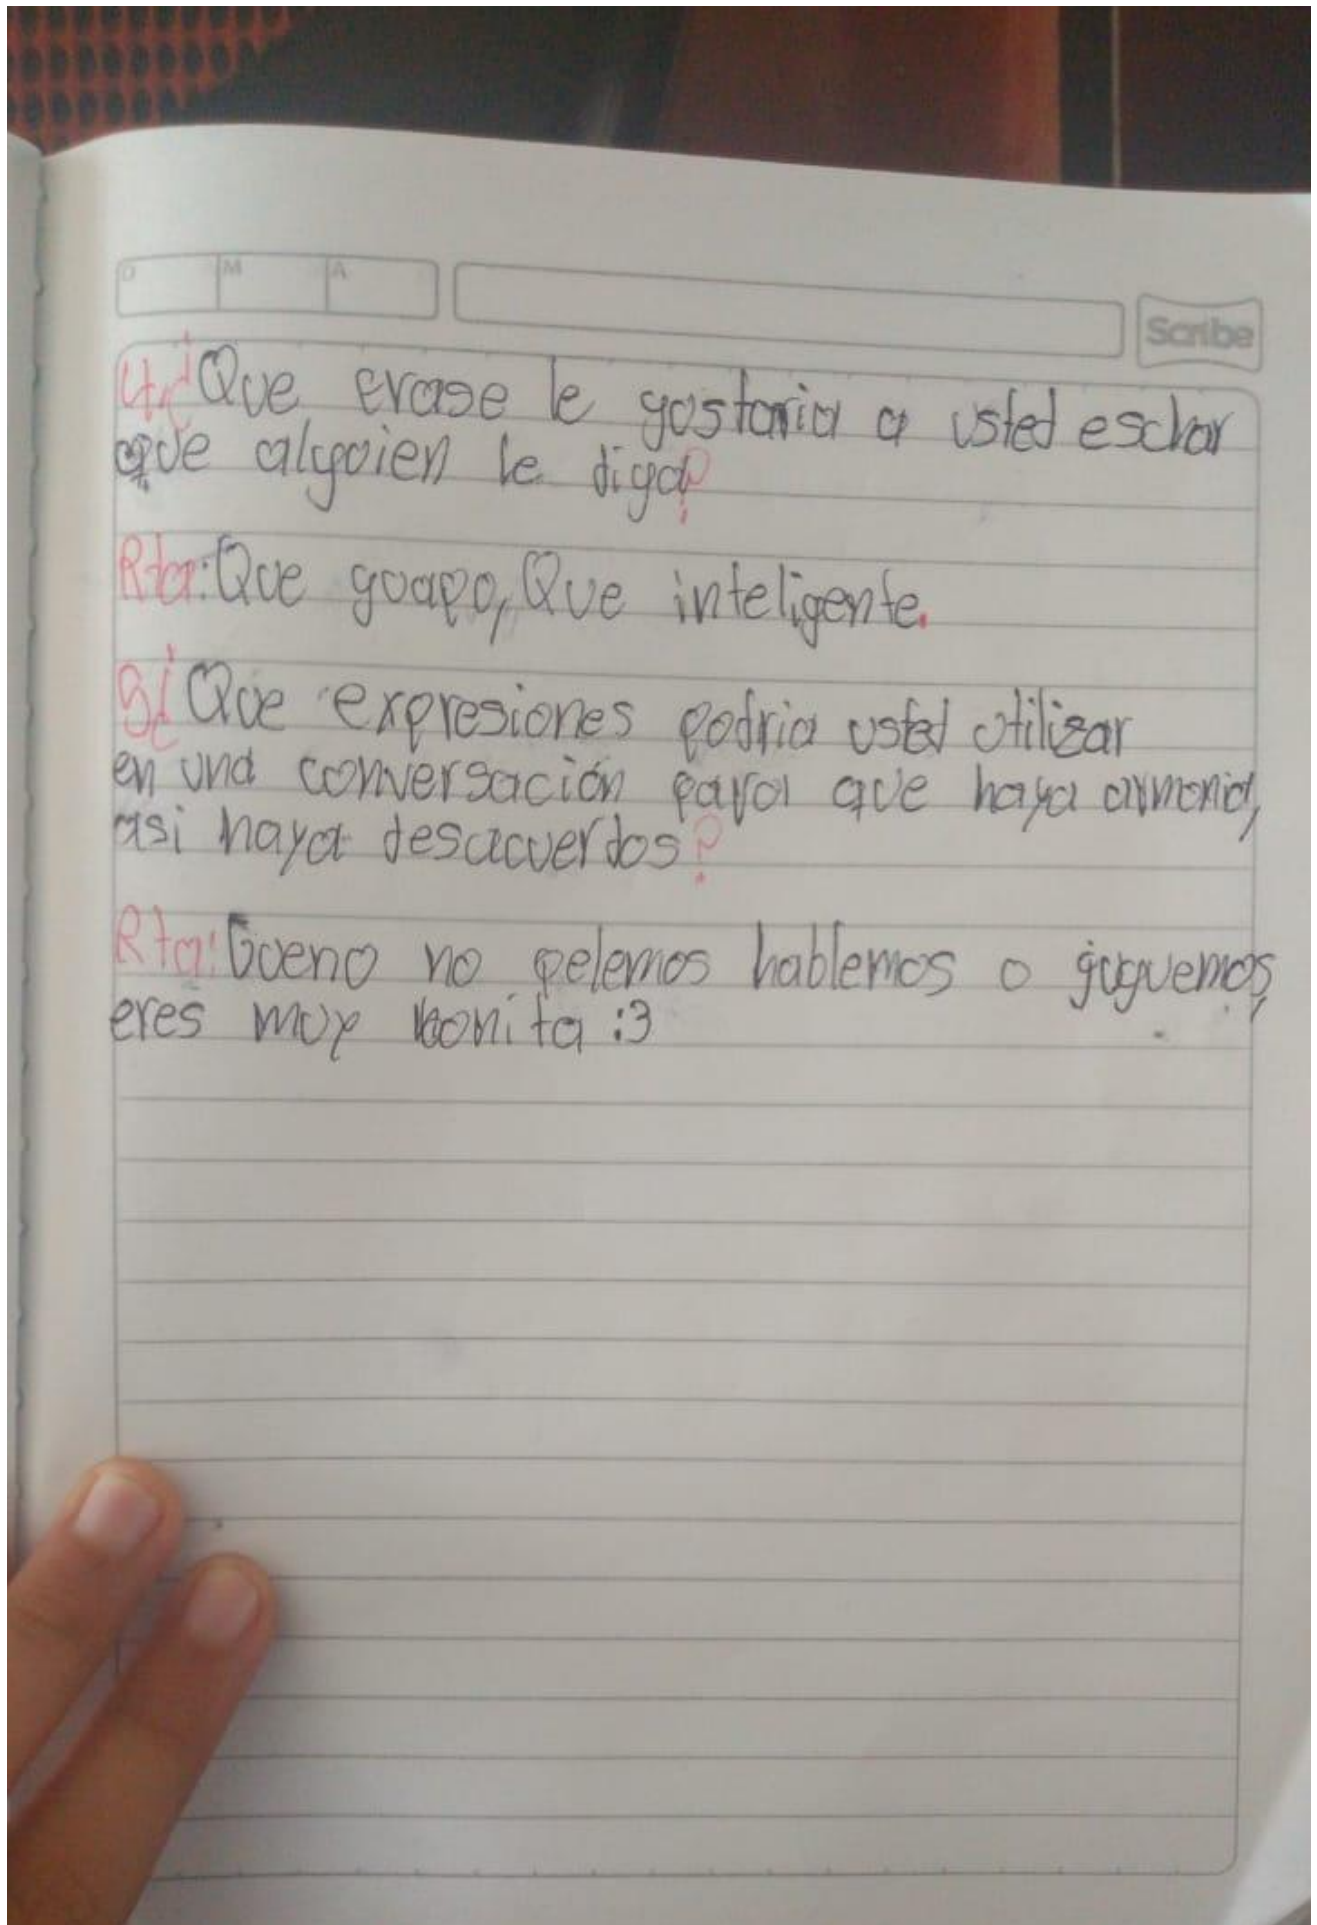 D M A
Scribe
4.¿Que erase le gostaria a usted eschar
que algoien le diga?
Rta: Que guapo, Que inteligente.
5¿Que expresiones podria usted utilizar
en una conversación para que haya armonia,
asi haya desacuerdos?
Rta: Gueno no pelemos hablemos o juguemos,
eres muy bonita :3